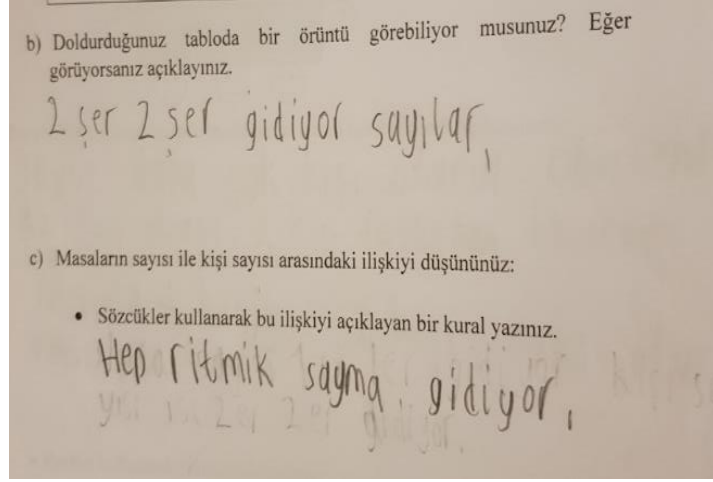 b) Doldurduğunuz tabloda bir örüntü görebiliyor musunuz? Eğer
görüyorsanız açıklayınız.
2 şer 2 şer gidiyor sayılar,
c) Masaların sayısı ile kişi sayısı arasındaki ilişkiyi düşününüz:
• Sözcükler kullanarak bu ilişkiyi açıklayan bir kural yazınız.
Hep ritmik sayma gidiyor,